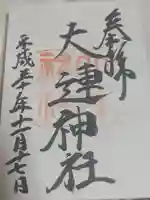 奉拝
大連神社
平成三十年十一月十七日